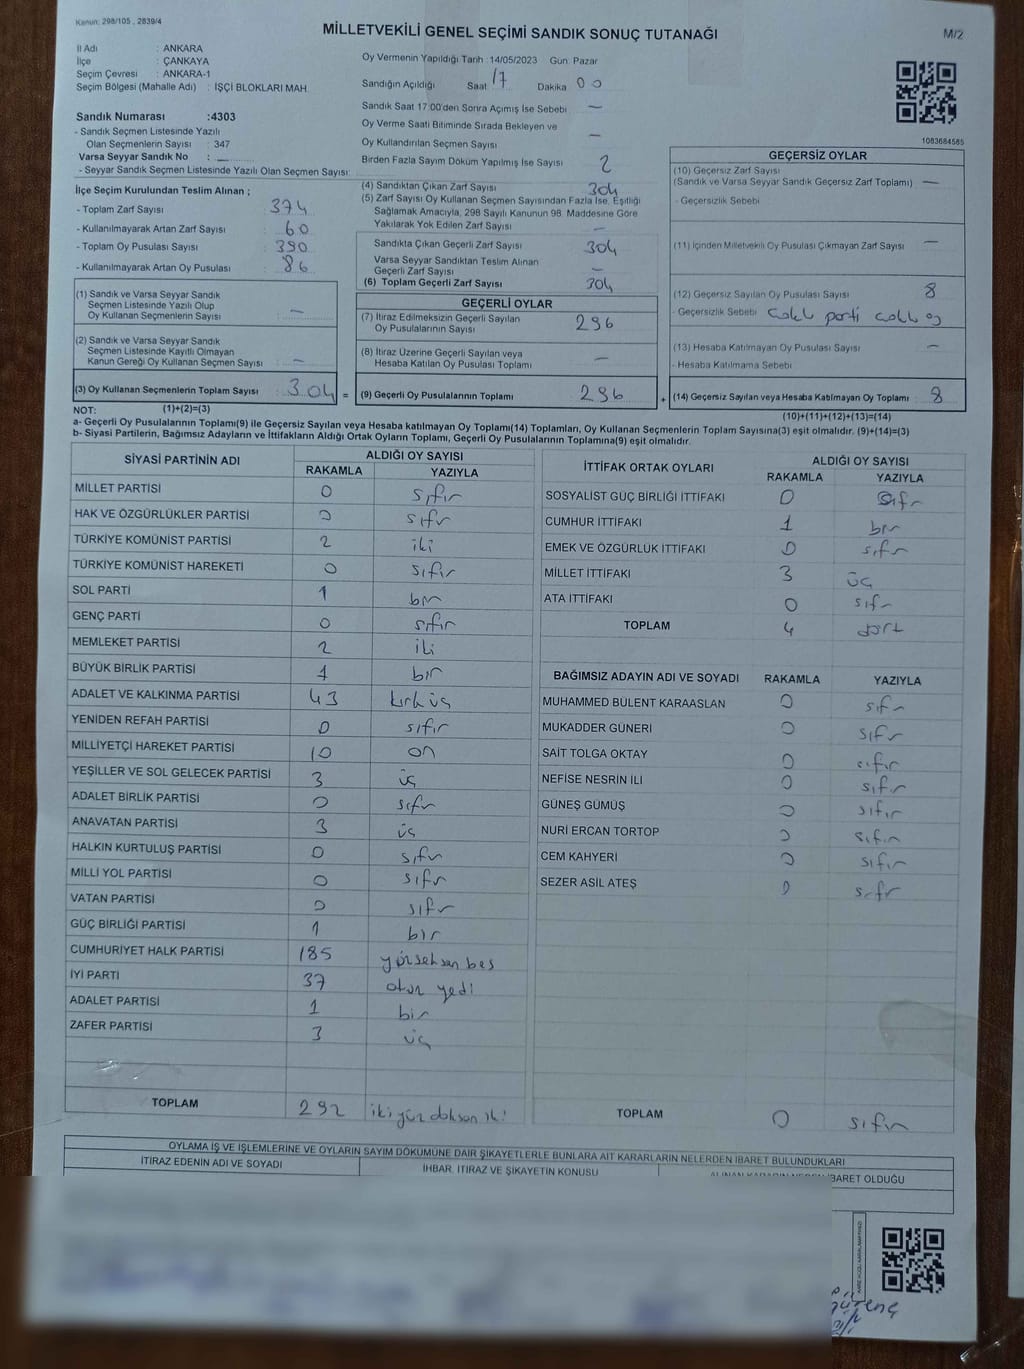 Kanun: 298/105 , 2839/4
MİLLETVEKİLİ GENEL SEÇİMİ SANDIK SONUÇ TUTANAĞI
M/2
İl Adı : ANKARA
İlçe : ÇANKAYA
Seçim Çevresi : ANKARA-1
Seçim Bölgesi (Mahalle Adı) : İŞÇİ BLOKLARI MAH.
Sandık Numarası :4303
- Sandık Seçmen Listesinde Yazılı
Olan Seçmenlerin Sayısı : 347
Varsa Seyyar Sandık No : —
- Seyyar Sandık Seçmen Listesinde Yazılı Olan Seçmen Sayısı:
Oy Vermenin Yapıldığı Tarih :14/05/2023 Gün: Pazar
Sandığın Açıldığı Saat 17 Dakika 00
Sandık Saat 17:00'den Sonra Açımış İse Sebebi —
Oy Verme Saati Bitiminde Sırada Bekleyen ve
Oy Kullandırılan Seçmen Sayısı —
Birden Fazla Sayım Döküm Yapılmış İse Sayısı 2
1083684585
İlçe Seçim Kurulundan Teslim Alınan ;
- Toplam Zarf Sayısı : 374
- Kullanılmayarak Artan Zarf Sayısı : 60
- Toplam Oy Pusulası Sayısı : 390
- Kullanılmayarak Artan Oy Pusulası : 86
(1) Sandık ve Varsa Seyyar Sandık
Seçmen Listesinde Yazılı Olup
Oy Kullanan Seçmenlerin Sayısı : —
(2) Sandık ve Varsa Seyyar Sandık
Seçmen Listesinde Kayıtlı Olmayan
Kanun Gereği Oy Kullanan Seçmen Sayısı : —
(3) Oy Kullanan Seçmenlerin Toplam Sayısı : 304 =
(4) Sandıktan Çıkan Zarf Sayısı 304
(5) Zarf Sayısı Oy Kullanan Seçmen Sayısından Fazla İse, Eşitliği
Sağlamak Amacıyla, 298 Sayılı Kanunun 98. Maddesine Göre
Yakılarak Yok Edilen Zarf Sayısı —
Sandıkta Çıkan Geçerli Zarf Sayısı 304
Varsa Seyyar Sandıktan Teslim Alınan
Geçerli Zarf Sayısı —
(6) Toplam Geçerli Zarf Sayısı 304
GEÇERLİ OYLAR
(7) İtiraz Edilmeksizin Geçerli Sayılan
Oy Pusulalarının Sayısı 296
(8) İtiraz Üzerine Geçerli Sayılan veya
Hesaba Katılan Oy Pusulası Toplamı —
(9) Geçerli Oy Pusulalarının Toplamı 296 +
GEÇERSİZ OYLAR
(10) Geçersiz Zarf Sayısı
(Sandık ve Varsa Seyyar Sandık Geçersiz Zarf Toplamı) —
- Geçersizlik Sebebi
(11) İçinden Milletvekili Oy Pusulası Çıkmayan Zarf Sayısı —
(12) Geçersiz Sayılan Oy Pusulası Sayısı 8
- Geçersizlik Sebebi çoklu parti çoklu oy
(13) Hesaba Katılmayan Oy Pusulası Sayısı —
- Hesaba Katılmama Sebebi
(14) Geçersiz Sayılan veya Hesaba Katılmayan Oy Toplamı : 8
NOT: (1)+(2)=(3)
(10)+(11)+(12)+(13)=(14)
a- Geçerli Oy Pusulalarının Toplamı(9) ile Geçersiz Sayılan veya Hesaba katılmayan Oy Toplamı(14) Toplamları, Oy Kullanan Seçmenlerin Toplam Sayısına(3) eşit olmalıdır. (9)+(14)=(3)
b- Siyasi Partilerin, Bağımsız Adayların ve İttifakların Aldığı Ortak Oyların Toplamı, Geçerli Oy Pusulalarının Toplamına(9) eşit olmalıdır.
SİYASİ PARTİNİN ADI ALDIĞI OY SAYISI
RAKAMLA YAZIYLA
MİLLET PARTİSİ 0 sıfır
HAK VE ÖZGÜRLÜKLER PARTİSİ 0 sıfır
TÜRKİYE KOMÜNİST PARTİSİ 2 iki
TÜRKİYE KOMÜNİST HAREKETİ 0 sıfır
SOL PARTİ 1 bir
GENÇ PARTİ 0 sıfır
MEMLEKET PARTİSİ 2 iki
BÜYÜK BİRLİK PARTİSİ 1 bir
ADALET VE KALKINMA PARTİSİ 43 kırk üç
YENİDEN REFAH PARTİSİ 0 sıfır
MİLLİYETÇİ HAREKET PARTİSİ 10 on
YEŞİLLER VE SOL GELECEK PARTİSİ 3 üç
ADALET BİRLİK PARTİSİ 0 sıfır
ANAVATAN PARTİSİ 3 üç
HALKIN KURTULUŞ PARTİSİ 0 sıfır
MİLLİ YOL PARTİSİ 0 sıfır
VATAN PARTİSİ 0 sıfır
GÜÇ BİRLİĞİ PARTİSİ 1 bir
CUMHURİYET HALK PARTİSİ 185 yürseksen beş
İYİ PARTİ 37 otuz yedi
ADALET PARTİSİ 1 bir
ZAFER PARTİSİ 3 üç
TOPLAM 292 iki yüz doksan iki
İTTİFAK ORTAK OYLARI ALDIĞI OY SAYISI
RAKAMLA YAZIYLA
SOSYALİST GÜÇ BİRLİĞİ İTTİFAKI 0 sıfır
CUMHUR İTTİFAKI 1 bir
EMEK VE ÖZGÜRLÜK İTTİFAKI 0 sıfır
MİLLET İTTİFAKI 3 üç
ATA İTTİFAKI 0 sıfır
TOPLAM 4 dört
BAĞIMSIZ ADAYIN ADI VE SOYADI RAKAMLA YAZIYLA
MUHAMMED BÜLENT KARAASLAN 0 sıfır
MUKADDER GÜNERİ 0 sıfır
SAİT TOLGA OKTAY 0 sıfır
NEFİSE NESRİN İLİ 0 sıfır
GÜNEŞ GÜMÜŞ 0 sıfır
NURİ ERCAN TORTOP 0 sıfır
CEM KAHYERİ 0 sıfır
SEZER ASİL ATEŞ 0 sıfır
TOPLAM 0 sıfır
OYLAMA İŞ VE İŞLEMLERİNE VE OYLARIN SAYIM DÖKÜMÜNE DAİR ŞİKAYETLERLE BUNLARA AİT KARARLARIN NELERDEN İBARET BULUNDUKLARI
İTİRAZ EDENİN ADI VE SOYADI
İHBAR, İTİRAZ VE ŞİKAYETİN KONUSU
ALINAN KARARIN NEDEN İBARET OLDUĞU